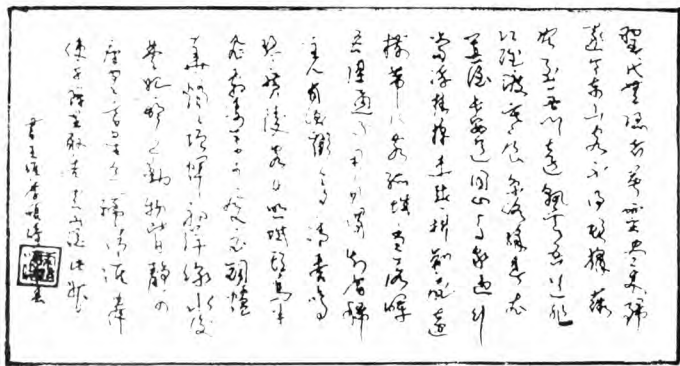 聖代無隱者英靈盡來歸
遂令東山客不得顧採薇
既至君門遠孰云吾道非
江淮度寒食京洛縫春衣
置酒長安道同心與我違行
當浮桂棹未幾拂荊扉遠
樹帶行客孤城當落暉
吾謀適不用勿謂知音稀
主人有酒歡今夕請奏鳴
琴廣陵客月照城頭烏半
飛霜淒萬木風入衣銅鑪
華燭燭增輝初彈淥水後
楚妃一聲已動物皆靜四
座無言星欲稀清淮奉
使千餘里敢告雲山從此始
書王維李頎詩